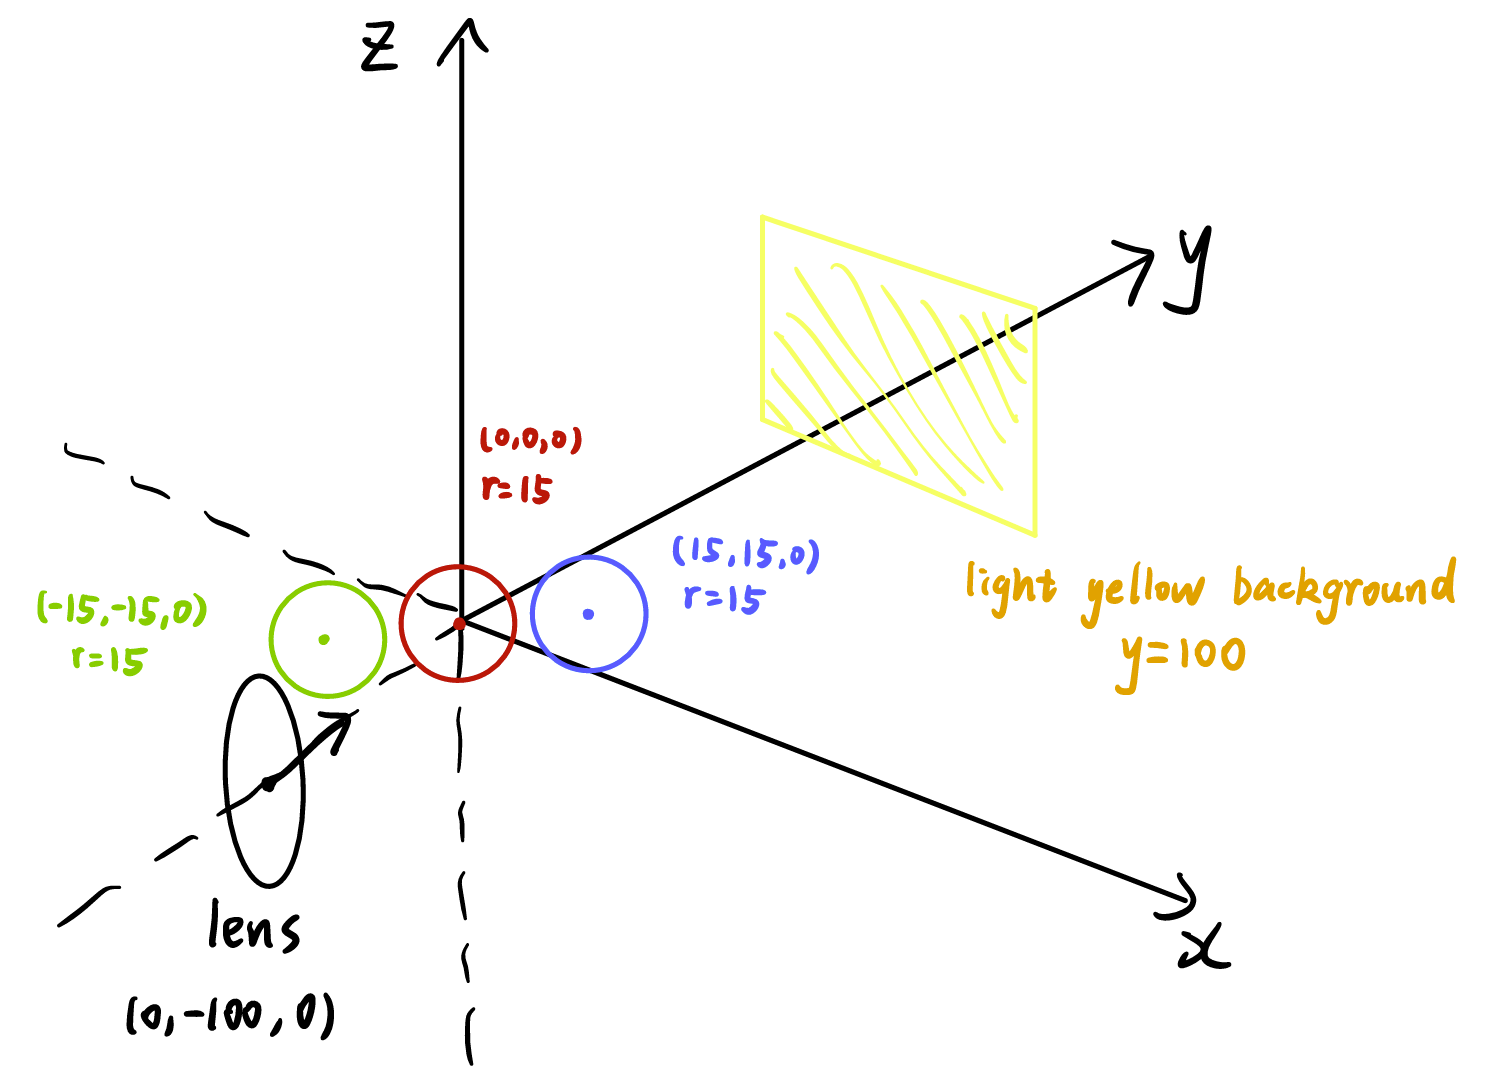 z
y
(0,0,0)
r=15
(15,15,0)
r=15
light yellow background
y=100
(-15,-15,0)
r=15
lens
(0,-100,0)
x